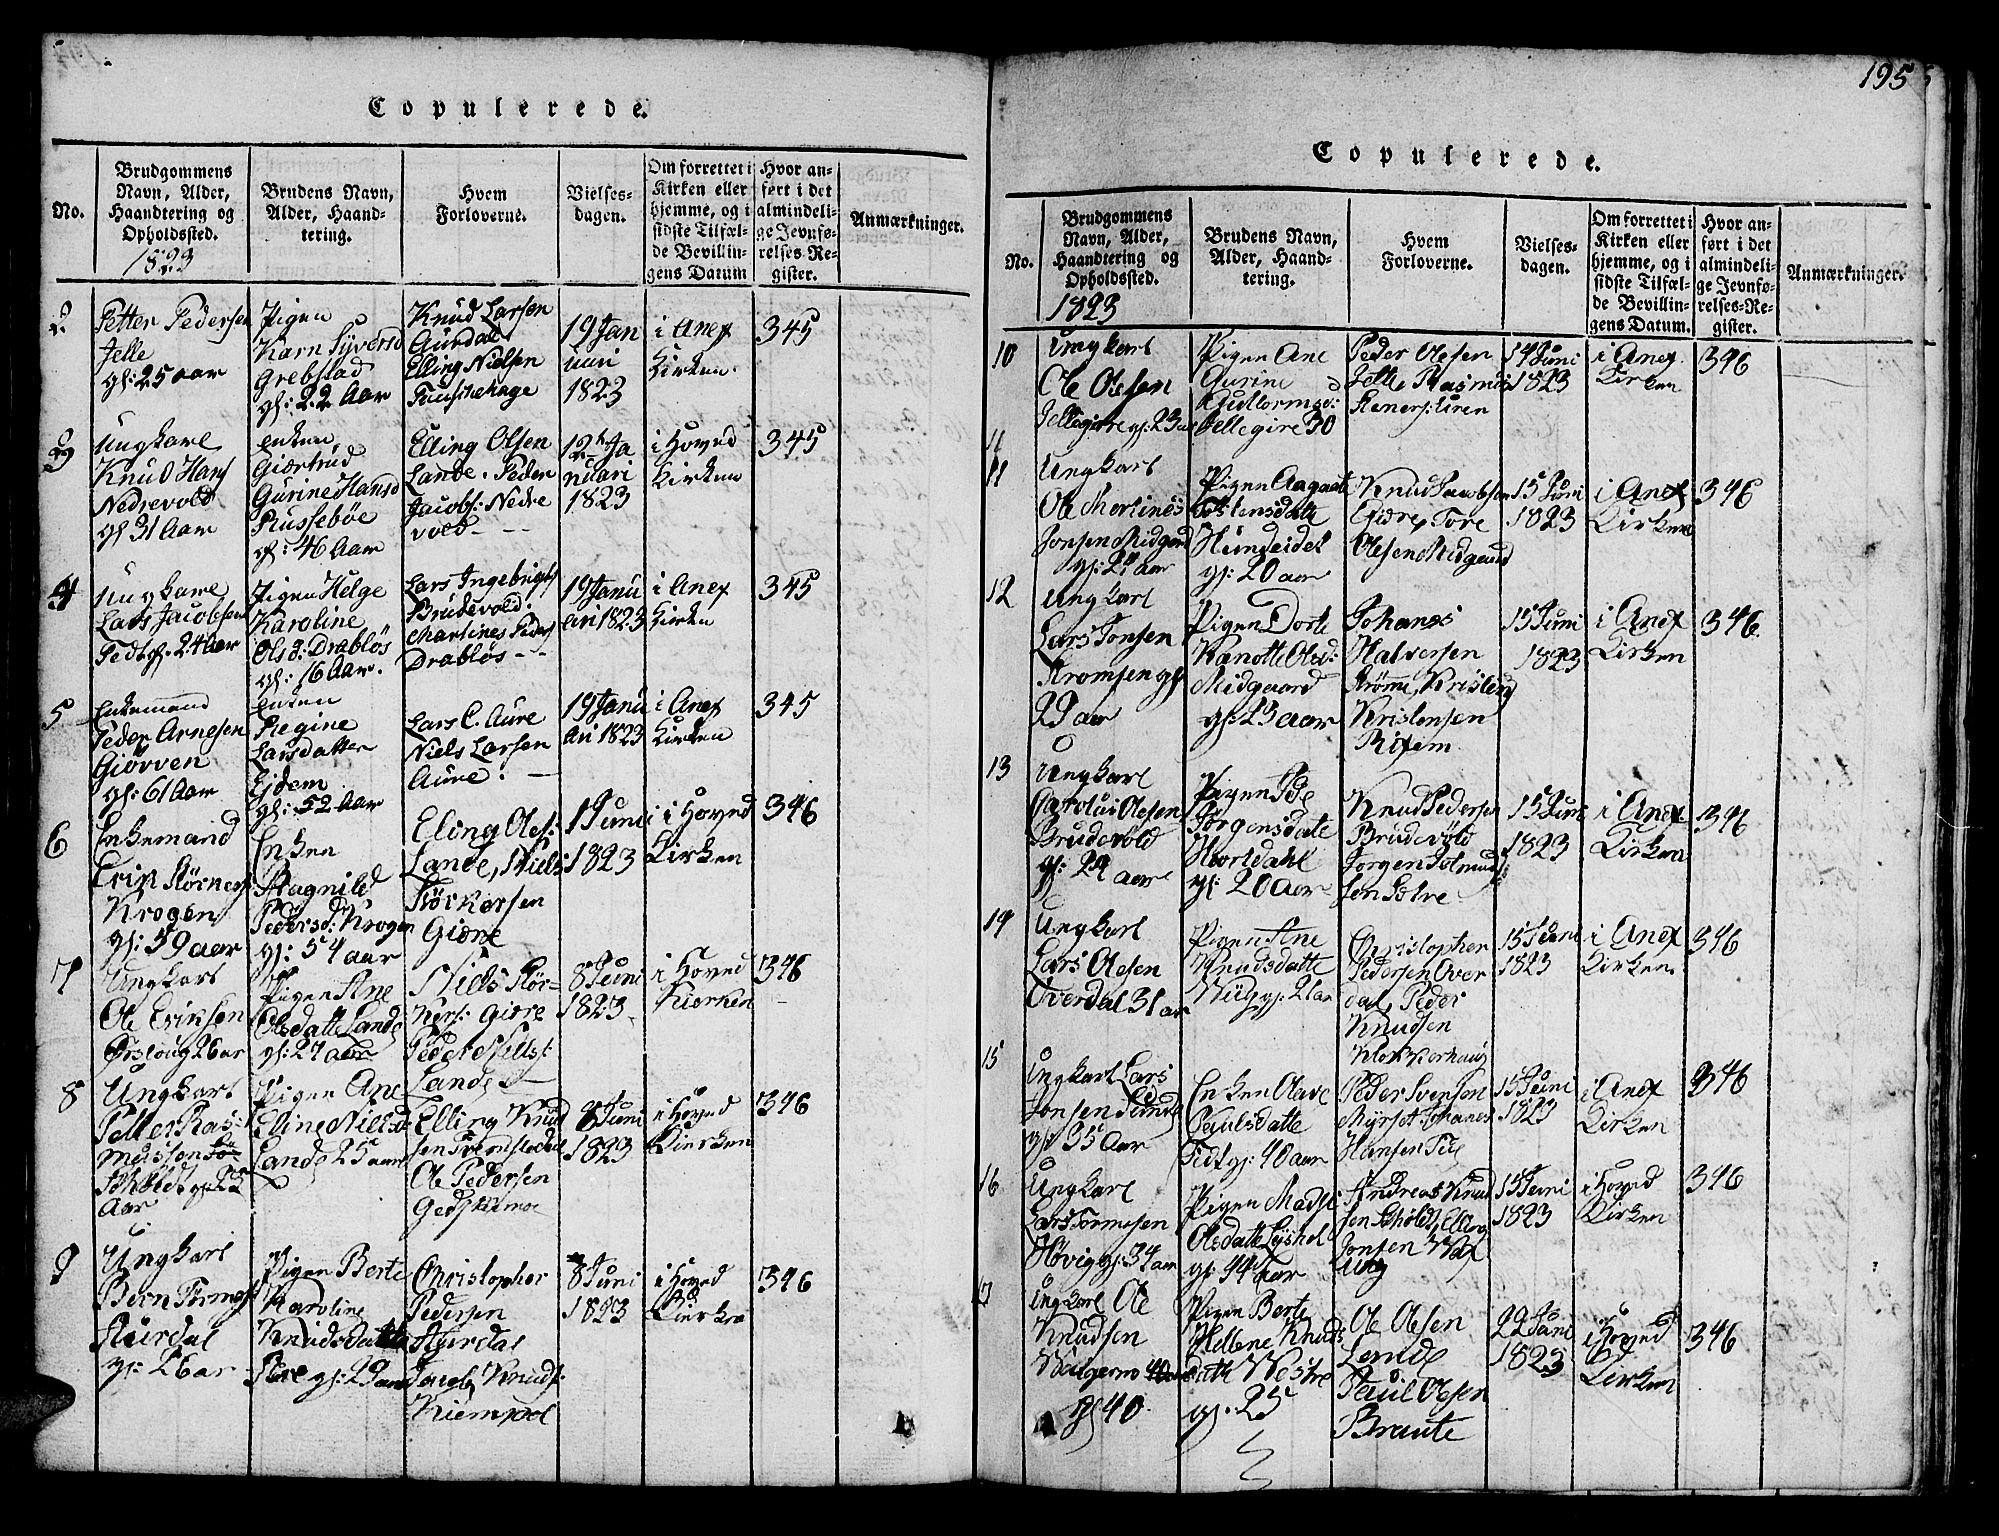 Copulerede.
No.
Brudgommens
Navn, Alder,
Haandtering og
Opholdssted.
1823
Brudens Navn,
Alder, Haand-
tering.
Hvem
Forloverne.
Vielses-
dagen.
Om forrettet i
Kirken eller
hjemme, og i
sidste Tilfæl-
de Bevillin-
gens Datum
Hvor an-
ført i det
almindeli-
ge Jevnfø-
relses-Re-
gister.
Anmærkninger.
2
Petter Pedersen
Jelle
gl: 25 aar
Pigen
Karn Syversd
Grebstad
gl: 22 Aar
Knud Larsen
Aurdal
Elling Nielsen
19 Jan
uari
1823
i Anex
Kirken.
345
3
Ungkare
Knud Hans
Nedrevold
gl 31 Aar
enken
Giærtrud
Gurine Hansd
Russebøe
gl: 46 Aar
Elling Olsen
Lande. Peder
Jacobs: Nedre
vold - -
12te Ja
nuari
1823
i Hoved
Kirken
345
4
Ungkare
Lars Jacobsen
Tedt gl. 24 Aar
Pigen Helge
Karoline
Olsd: Drabløs
gl: 16 Aar.
Lars Ingebrigts
Brudevold.
Martines Peders
Drabløs - -
19 Janu
ari 1823
i Anex
Kirken
345
5
Enkemand
Peder Arnesen
Giørven
gl: 61 Aar
enken
Regine
Larsdatter
Ejdem
gl: 52 Aar
Lars C. Aure
Niels Larsen
Aure. -
19 Janu
ari 1823
i Anex
Kirken
345
6
Enkemand
Erik Størners
Krogen
gl: 59 aar
Enken
Ragnild
Pedersd: Krogen
gl: 54 aar
Eling Oles:
Lande, Niels
Størkersen
Giære
1 Juni
1823
i Hoved
Kirken
346
7
Ungkarl
Ole Eriksen
gl 26 ar
Pigen Ane
Olsdatte Lande
gl: 27 aar
Niels Stør-
Kers: Giære
Peder Niels:
Lande
8 Juni
1823
i Hoved
Kierken
346
8
Ungkarl
Petter Ras-
mussen
gl 23
Aar
Pigen Ane
Elline Nielsd
Lande 25 aar
Elling Knud
sen
Ole Pedersen
8 Juni
1823
i Hoved
Kierken
346
9
Ungkarl
Bern Tormos
Aurdal
gl: 26 ar
Pigen Berte
Karoline
Knudsdatte
gl: 29 aar
Christopher
Pedersen
Aurdal
Jacob Knuds:
8 Juni
1823
i Hoved
Kierke
346
195
Copulerede.
No.
Brudgommens
Navn, Alder,
Haandtering og
Opholdssted.
1823
Brudens Navn,
Alder, Haand-
tering.
Hvem
Forloverne.
Vielses-
dagen.
Om forrettet i
Kirken eller
hjemme, og i
sidste Tilfæl-
de Bevillin-
gens Datum.
Hvor an-
ført i det
almindeli-
ge Jevnfø-
relses-Re-
gister.
Anmærkninger.
10
Ungkarl
Ole Olesen
Jellegire gl: 23 aar
Pigen Ane
Gurine
Gudtormsd:
Jellegire 30
Peder Olesen
Jelle, Rasmus
14 Juni
1823
i Anex.
Kirken
346
11
11
Ungkarl
Ole Mortines
Jonsen Midgard
gl: 24 aar
Pigen Aagaate
Hundeidet
gl: 20 aar
Knud Jacobsen
Gidre, Tore
Olesen Midgaard
15 Juni
1823
i Anex
Kirken
346
12
Ungkarl
Lars Jonsen
gl
29 aar
Pigen Dorte
Kanotte Olsd:
Midgaard
gl: 23 aar
Johanes
Halversen
Strømi, Kristen
Kristensen
Rixem
15 Juni
1823
i Anex
Kirken
346.
13
Ungkarl
Carolus Olesen
Brudevold
gl: 24 aar
Pigen
Jørgensdate
Hiortdahl
gl: 20 aar
Knud Pedersen
Brudevold
Jørgen
15 Juni
1823
i Anex
Kirken
346
14
Ungkarl
Lars Olesen
Overdal 31 ar
Pigen Ane
Knudsdatte
gl: 21 ar
Christopher
Pedersen Over
dal, Peder
Knudsen
Klokkerhaug
15 Juni
1823
i Anex
Kirken.
346
15
Ungkarl Lars
Jonsen
gl 35 aar
Enken Olave
Paulsdatte
Tedt gl: 40 aar
Peder Svensen
Myrset Johanes
Hansen
15 Juni
1823
i Anex
Kirken
346
16
Ungkarl
Lars Tormosen
Høvig gl: 34 aar
Pigen Madsi
Olsdatte
gl 44 aar
Andreas Knud
sen Schølt, Elling
Jonsen
15 Juni
1823
i Hoved
Kirken
346
17
Ungkarl Ole
Knudsen
gl 40
Pigen Berte
Hellene Knuds
datte Westre
gl: 25
Ole Olesen
Lande
Paul Olesen
Braute
22 Juni
1823
i Hoved
Kirken
346